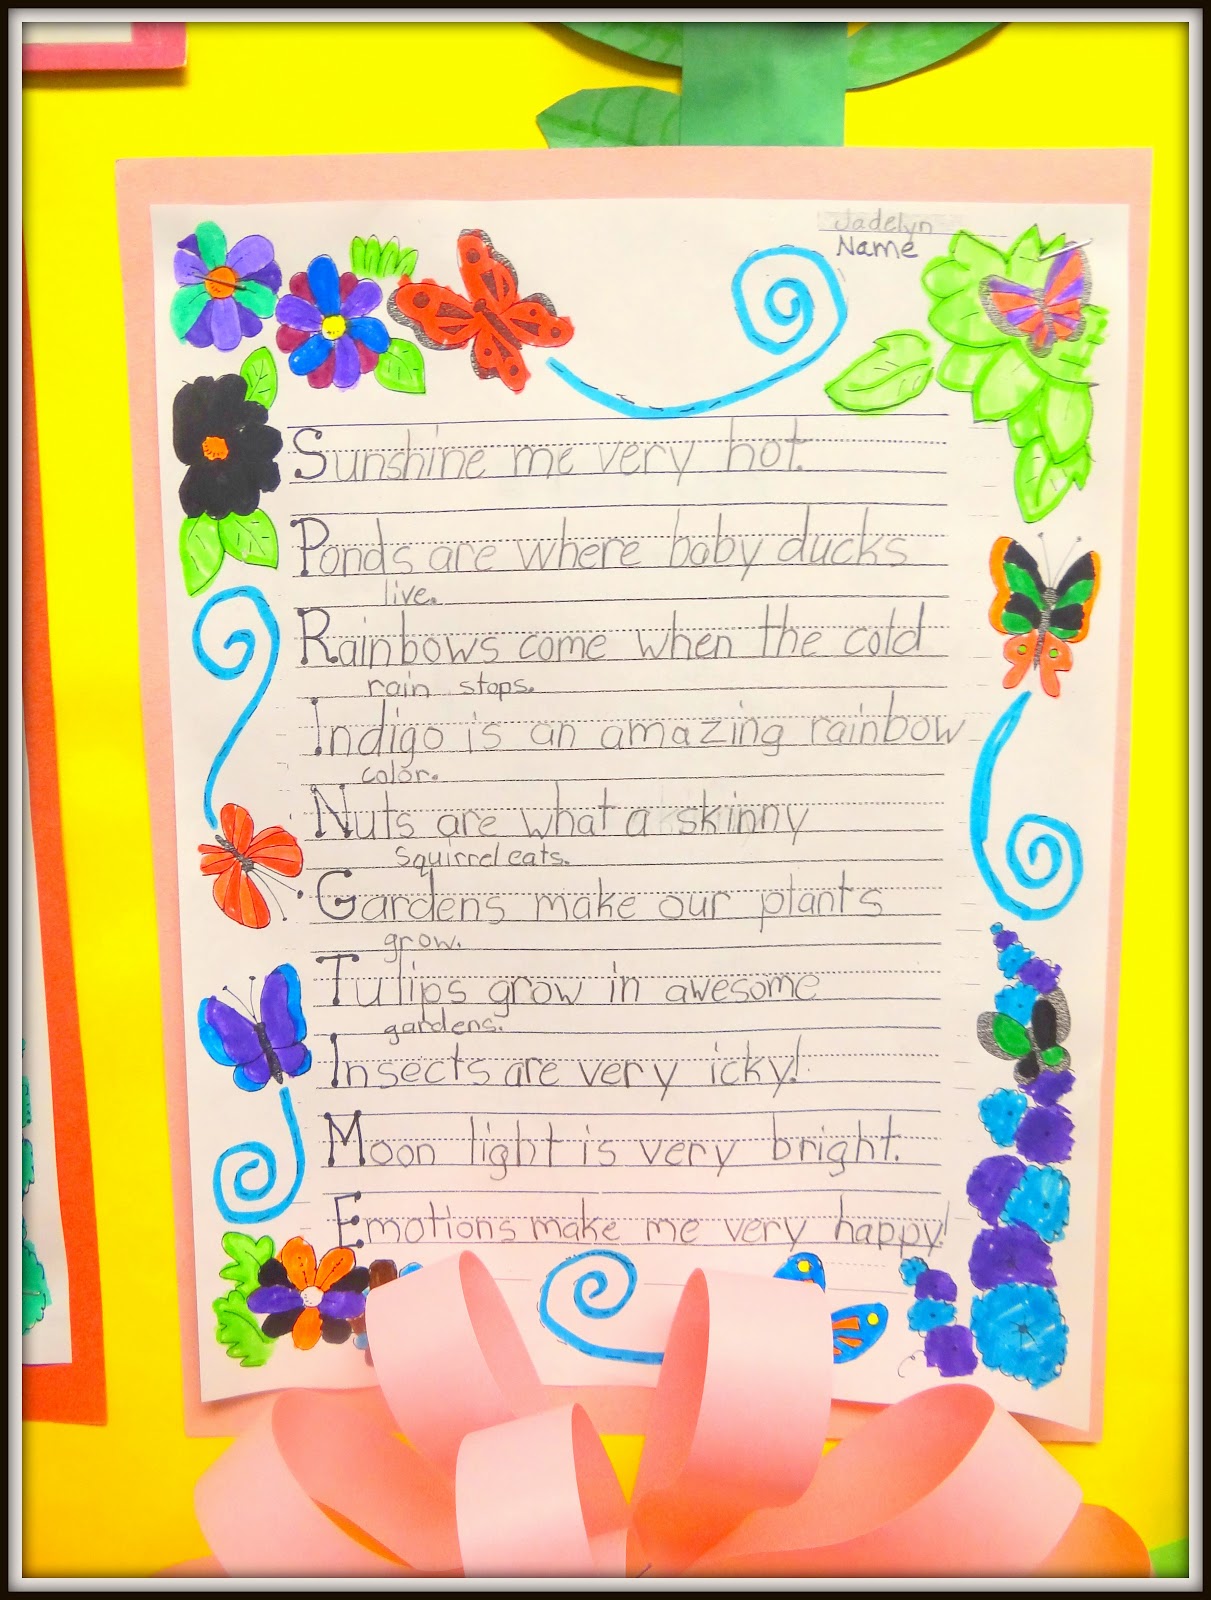 Jadelyn
Name
Sunshine me very hot.
Ponds are where baby ducks
live.
Rainbows come when the cold
rain stops.
Indigo is an amazing rainbow
color.
Nuts are what a skinny
squirrel eats.
Gardens make our plants
grow.
Tulips grow in awesome
gardens.
Insects are very icky!
Moon light is very bright.
Emotions make me very happy!